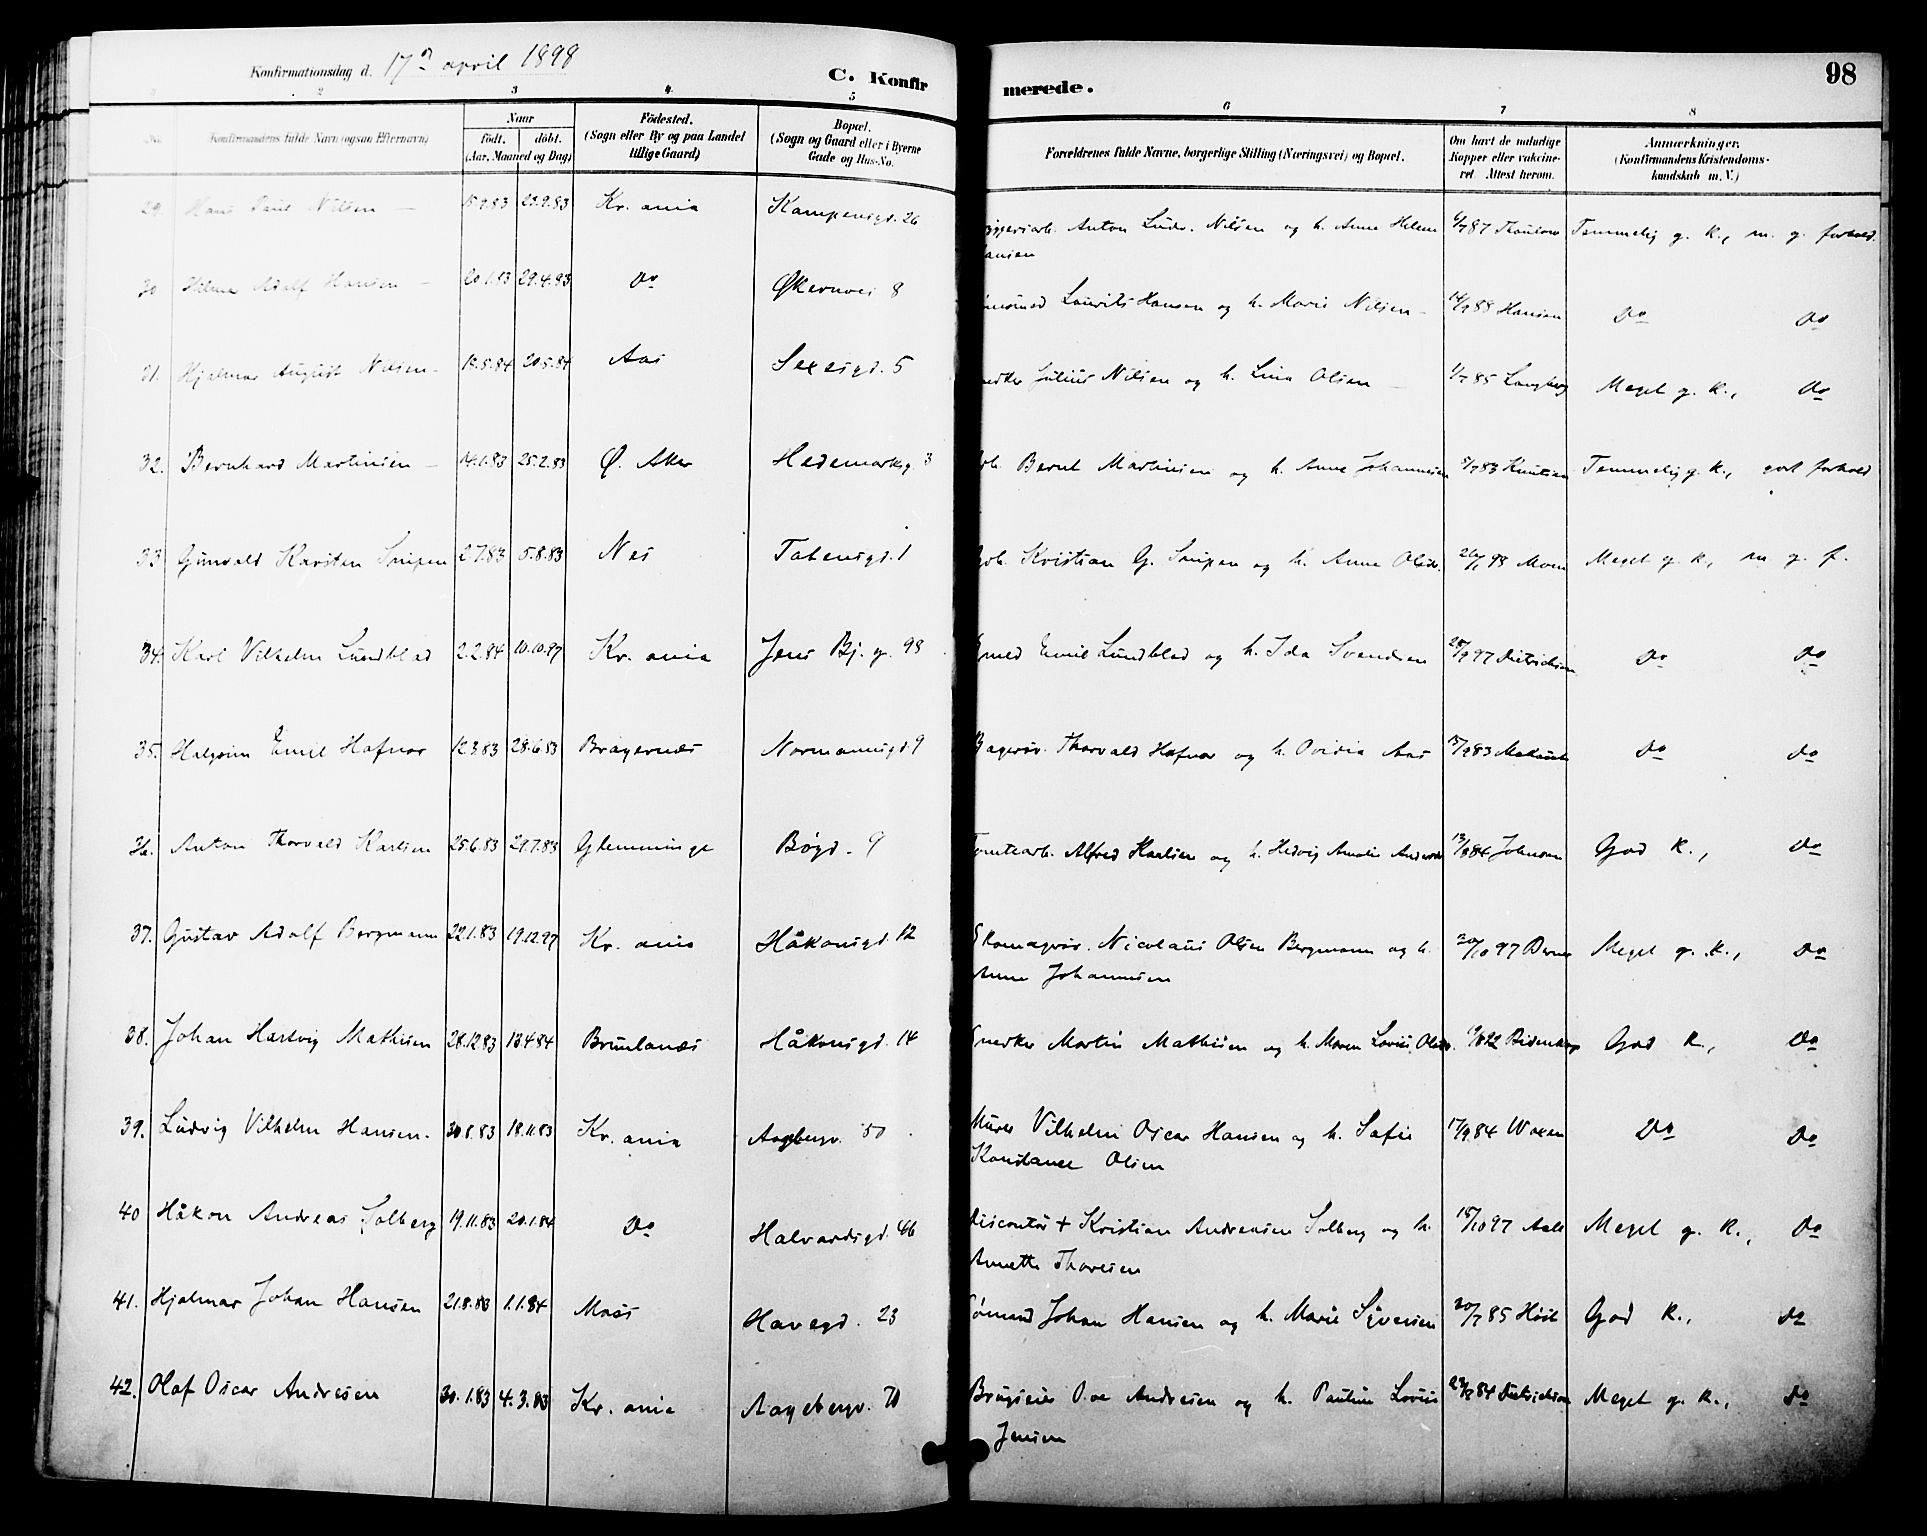 Konfirmationsdag d. 17de april 1898
C. Konfirmerede.
98
1 2 3 4 5 6 7 8
No.
Konfirmandens fulde Navn (ogsaa Efternavn)
Naar
födt. döbt.
(Aar, Maaned og Dag)
Födested.
(Sogn eller By og paa Landet
tillige Gaard)
Bopæl.
(Sogn og Gaard eller i Byerne
Gade og Hus-No.
Forældrenes fulde Navne, borgerlige Stilling (Næringsvei) og Bopæl.
Om havt de naturlige
Kopper eller vakcine-
ret Attest herom.
Anmærkninger.
(Konfirmandens Kristendoms-
kundskab m. V.)
29. Hans Paul Nilsen 15.9.83 23.9.83 Kr.ania Kampensgd. 26 Anton Ludv. Nilsen og h. Anne Helene 6/7 87 Thaulow Temmelig g. k., m. g. forhold.
Hansen
30 Hilmar Adolf Hansen 20.1.83 29.4.83 Do Økernvei 8 Laurits Hansen og h. Marie Nilsen 14/9 88 Hansen Do Do
31. Hjalmar August Nilsen 15.5.84 20.5.84 Aas Sexesgd. 5 Snedker Julius Nilsen og h. Lina Olsen 1/7 85 Langberg Meget g. k., Do
32. Bernhard Martinsen 14.1.83 25.2.83 Ø. Aker Hedemarksg. 3 Arb. Bernt Martinsen og h. Anne Johannesen 5/7 83 Knutsen Temmelig g. k., godt forhold
33 Gunvald Karsten Snipen 2.7.83 5.8.83 Nes Totensgd. 1 Arb. Kristian G. Snipen og h. Anne Olsdr. 26/1 98 Moen Meget g. k., m. g. f.
34. Karl Vilhelm Lundblad 2.2.84 10.10.97 Kr.ania Jens Bj. g. 98 Emil Lundblad og h. Ida Svendsen 28/9 97 Dietrichson Do Do
35. Halgrim Emil Hafnor 12.3.83 28.6.83 Bragernæs Normannsgd. 9 Bagersv. Thorvald Hafnor og h. Ovidia Aas 15/9 83 Do Do
36. Anton Thorvald Karlsen 25.6.83 29.7.83 Glemminge Bøgd. 9 Tomtearb. Alfred Karlsen og h. Hedvig Amalie Andersdr 13/8 84 Johnson God k., Do
37. Gustav Adolf Bergmann 22.1.83 19.12.97 Kr.ania Håkonsgd. 12 Skomagersv. Nicolaus Olsen Bergmann og h. 20/10 97 Berner Meget g. k., Do
Anne Johannesen
38. Johan Hartvig Mathisen 28.12.83 13.4.84 Brunlanæs Håkonsgd. 14 Snedker Martin Mathisen og h. Maren Lovise Olsdr. Bidenkap God k., Do
39. Ludvig Vilhelm Hansen. 30.8.83 18.11.83 Kr.ania Aagebergv. 50 Murer Vilhelm Oscar Hansen og h. Sofie 17/9 84 Woxen Do Do
Konstance Olsen
40 Håkon Andreas Solberg 19.11.83 20.1.84 Do Halvardsgd. 46 Kristian Andreasen Solberg og h. 18/10 97 Aall Meget g. k., Do
Annette Thoresen
41. Hjalmar Johan Hansen 21.8.83 1.1.84 Moss Havegd. 23 Sømand Johan Hansen og h. Marie Syversen 20/7 85 Høst God k., do
42. Olaf Oscar Andresen 30.1.83 4.3.83 Kr.ania Aagebergv. 70 O. Andresen og h. Pauline Lovise 29/9 84 Dietrichson Meget g. k., do
Jensen